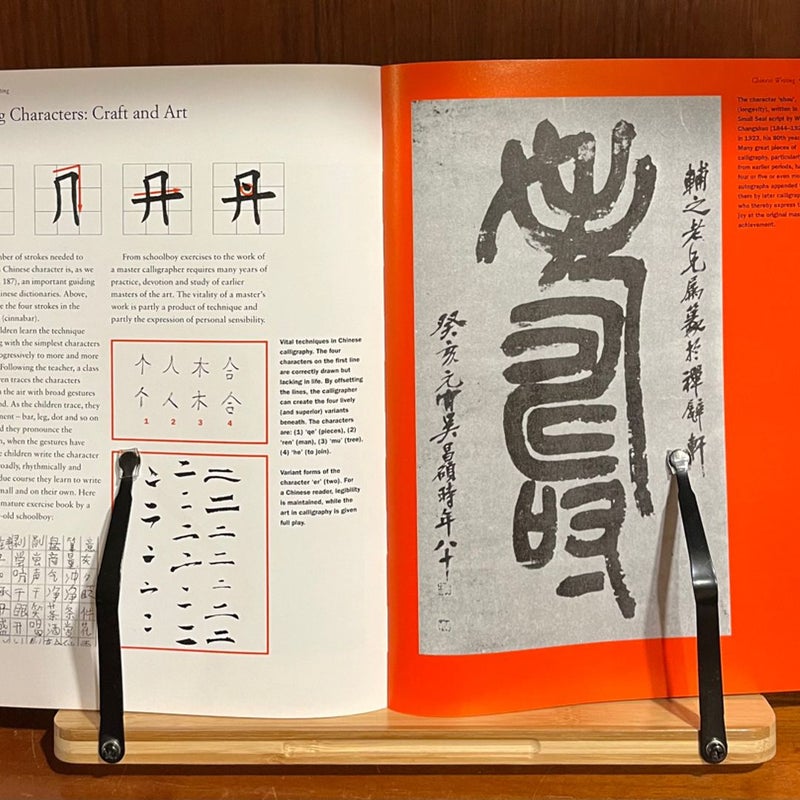 g Characters: Craft and Art
mber of strokes needed to
Chinese character is, as we
187), an important guiding
inese dictionaries. Above,
e the four strokes in the
(cinnabar).
ldren learn the technique
g with the simplest characters
ogressively to more and more
Following the teacher, a class
ren traces the characters
in the air with broad gestures
nd. As the children trace, they
nent – bar, leg, dot and so on
d they pronounce the
n, when the gestures have
e children write the character
roadly, rhythmically and
ue course they learn to write
mall and on their own. Here
mature exercise book by a
-old schoolboy:
丹
From schoolboy exercises to the work of
a master calligrapher requires many years of
practice, devotion and study of earlier
masters of the art. The vitality of a master's
work is partly a product of technique and
partly the expression of personal sensibility.
个 人 木 合
个 人 木 合
1 2 3 4
Vital techniques in Chinese
calligraphy. The four
characters on the first line
are correctly drawn but
lacking in life. By offsetting
the lines, the calligrapher
can create the four lively
(and superior) variants
beneath. The characters
are: (1) 'ge' (pieces), (2)
'ren' (man), (3) 'mu' (tree),
(4) 'he' (to join).
Variant forms of the
character 'er' (two). For
a Chinese reader, legibility
is maintained, while the
art in calligraphy is given
full play.
二 二 二
Chinese Writing
輔之老兄屬篆於禪甓軒
壽
癸亥元宵吳昌碩時年八十
The character 'shou',
(longevity), written in
Small Seal script by W
Changshuo (1844–192
in 1923, his 80th year
Many great pieces of
calligraphy, particular
from earlier periods, ha
four or five or even mo
autographs appended
them by later calligrap
who thereby express t
joy at the original mas
achievement.